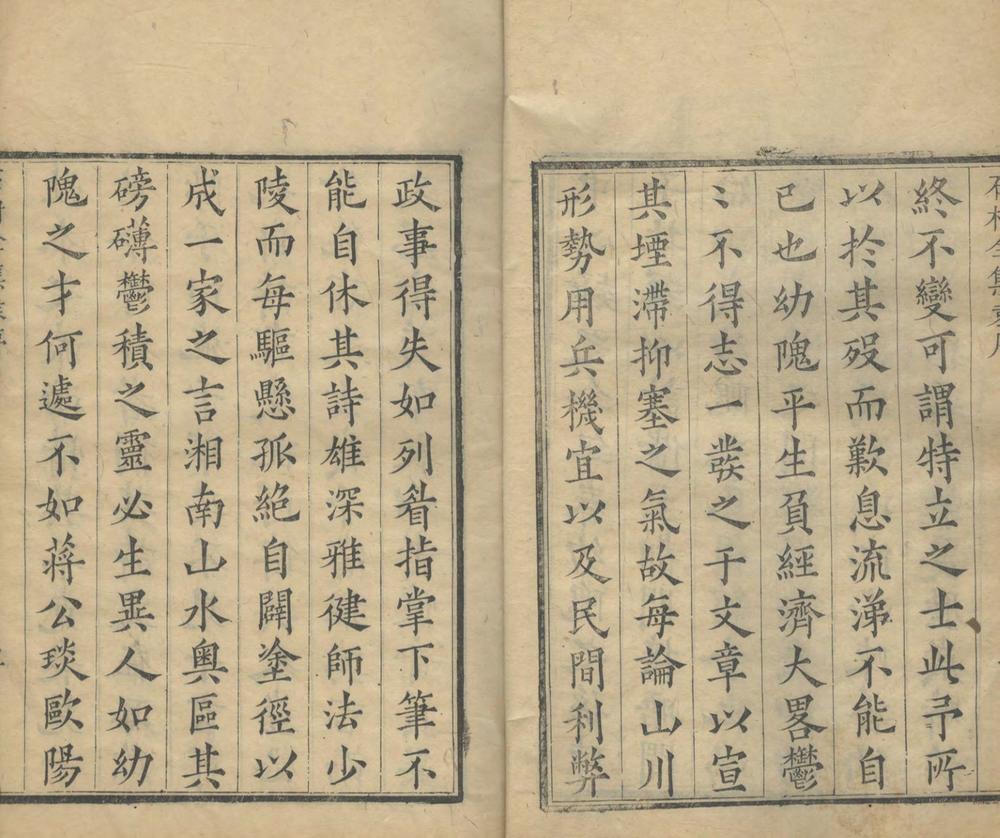 終不變可謂特立之士此予所
以扵其歿而歎息流涕不能自
已也幼隗平生負經濟大畧鬱
〻不得志一發之于文章以宣
其堙滯抑塞之氣故每論山川
形勢用兵機宜以及民間利弊
政事得失如列眉指掌下筆不
能自休其詩雄深雅健師法少
陵而每驅懸孤絶自闢塗徑以
成一家之言湘南山水奥區其
磅礴鬱積之靈必生異人如幼
隗之才何遽不如蔣公琰歐陽